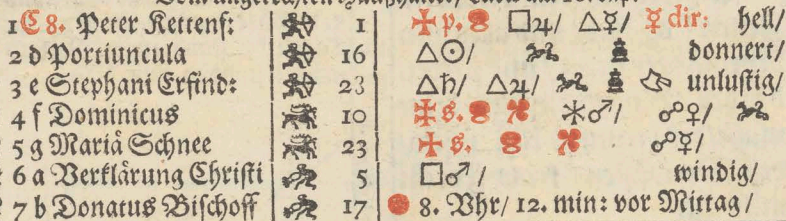 1 C 8. Peter Kettenf: 1 ✠ p. □♃/ △☿/ ☿ dir: hell/
2 d Portiuncula 16 △☉/ donnert/
3 e Stephani Erfind: 23 △♄/ △♃/ unlustig/
4 f Dominicus 10 ✠ s. ⚹♂/ ☍♀/
5 g Mariä Schnee 23 ✠ s. ☍☿/
6 a Verklärung Christi 5 □♂/ windig/
7 b Donatus Bischoff 17 8. Vhr/ 12. min: vor Mittag/